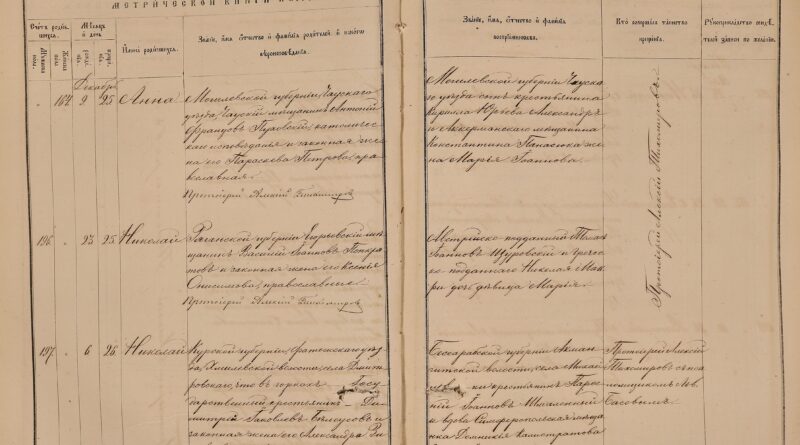 МЕТРИЧЕСКОЙ КНИГИ
Счетъ родив-
шихся.
Мужеска
пол.
Женска
пол.
Мѣсяцъ
и день
рожде-
нія.
креще-
нія.
Имена родившихся.
Званіе, имя, отчество и фамилія родителей и какого
вѣроисповѣданія.
Званіе, имя, отчество и фамилія
воспріемниковъ.
Кто совершалъ таинство
крещенія.
Рукоприкладство свидѣ-
телей записи по желанію.
Декабрь
164. 9 25. Анна
Могилевской губерніи, Чаускаго
уѣзда, Чаускій мѣщанинъ Антоній
Францовъ католичес-
каго исповѣданія и законная же-
на его Параскева Петрова, пра-
вославная.
Протоіерей Алексій Тихомировъ
Могилевской губерніи, Чауска-
го уѣзда сынъ крестьянина
Кирилла Юрьева Александръ
и Аккерманскаго мѣщанина
Константина Панасюка же-
на Марья Іоаннова.
Протоіерей Алексій Тихомировъ.
196. 23. 25. Николай
Рязанской губерніи, Егорьевскій мѣ-
щанинъ Василій Іоанновъ Понкра-
товъ и законная жена его Ксенія
Онисимова, православные.
Протоіерей Алексій Тихомировъ
Австрійско-подданный
Іоанновъ Щуровскій и Гречес-
ко подданнаго Николая Мав-
ри дочь дѣвица Марія.
197. 6 26. Николай
Курской губерніи, Фатежскаго уѣз-
да, волости, села Дмит-
ровскаго, что въ горкахъ, Госу-
дарственный крестьянинъ Ди-
митрій Іаковлевъ Бѣлоусовъ и
законная жена его Александра
Бессарабской губерніи
волости, села
крестьянинъ
Іоанновъ
и вдова Симферопольская мѣщан-
ка Домникія Калистратова
Протоіерей Алексій
Тихомировъ съ по-
мощникомъ
Басовымъ.